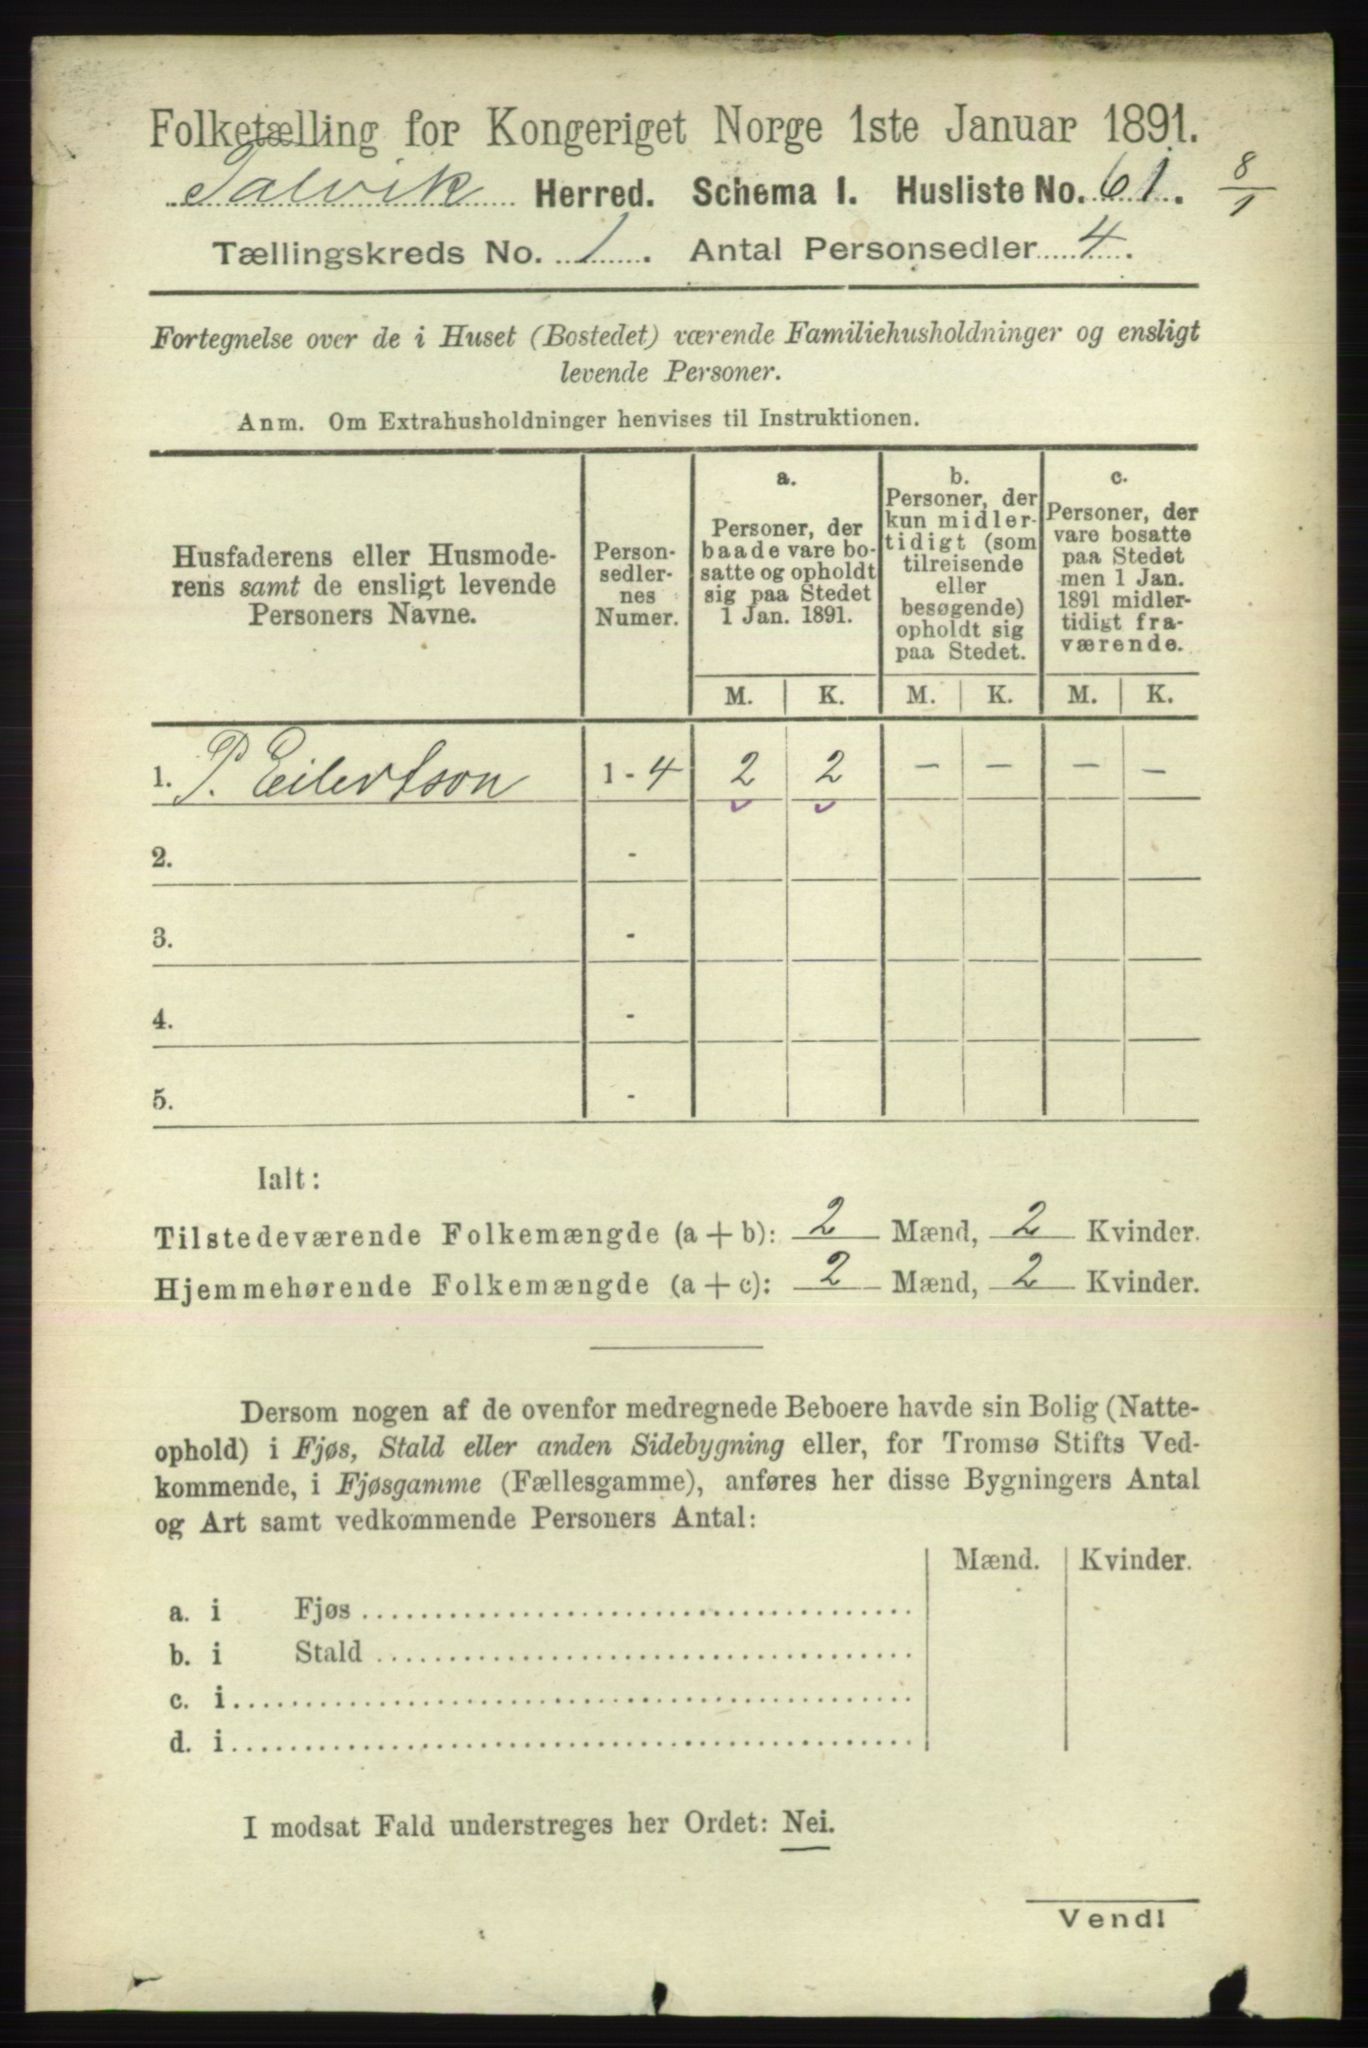 Folketælling for Kongeriget Norge 1ste Januar 1891.
Talvik Herred. Schema I. Husliste No. 61. 8/1
Tællingskreds No. 1. Antal Personsedler 4.
Fortegnelse over de i Huset (Bostedet) værende Familiehusholdninger og ensligt
levende Personer.
Anm. Om Extrahusholdninger henvises til Instruktionen.
Husfaderens eller Husmode-
rens samt de ensligt levende
Personers Navne.
Person-
sedler-
nes
Numer.
a.
Personer, der
baade vare bo-
satte og opholdt
sig paa Stedet
1 Jan. 1891.
b.
Personer, der
kun midler-
tidigt (som
tilreisende
eller
besøgende)
opholdt sig
paa Stedet.
c.
Personer, der
vare bosatte
paa Stedet
men 1 Jan.
1891 midler-
tidigt fra-
værende.
M. K. M. K. M. K.
1. P. Eilertson 1 - 4 2 2 - - - -
2. -
3. -
4. -
5. -
Ialt:
Tilstedeværende Folkemængde (a + b): 2 Mænd, 2 Kvinder.
Hjemmehørende Folkemængde (a + c): 2 Mænd, 2 Kvinder.
Dersom nogen af de ovenfor medregnede Beboere havde sin Bolig (Natte-
ophold) i Fjøs, Stald eller anden Sidebygning eller, for Tromsø Stifts Ved-
kommende, i Fjøsgamme (Fællesgamme), anføres her disse Bygningers Antal
og Art samt vedkommende Personers Antal:
Mænd. Kvinder.
a. i Fjøs
b. i Stald
c. i
d. i
I modsat Fald understreges her Ordet: Nei.
Vend!